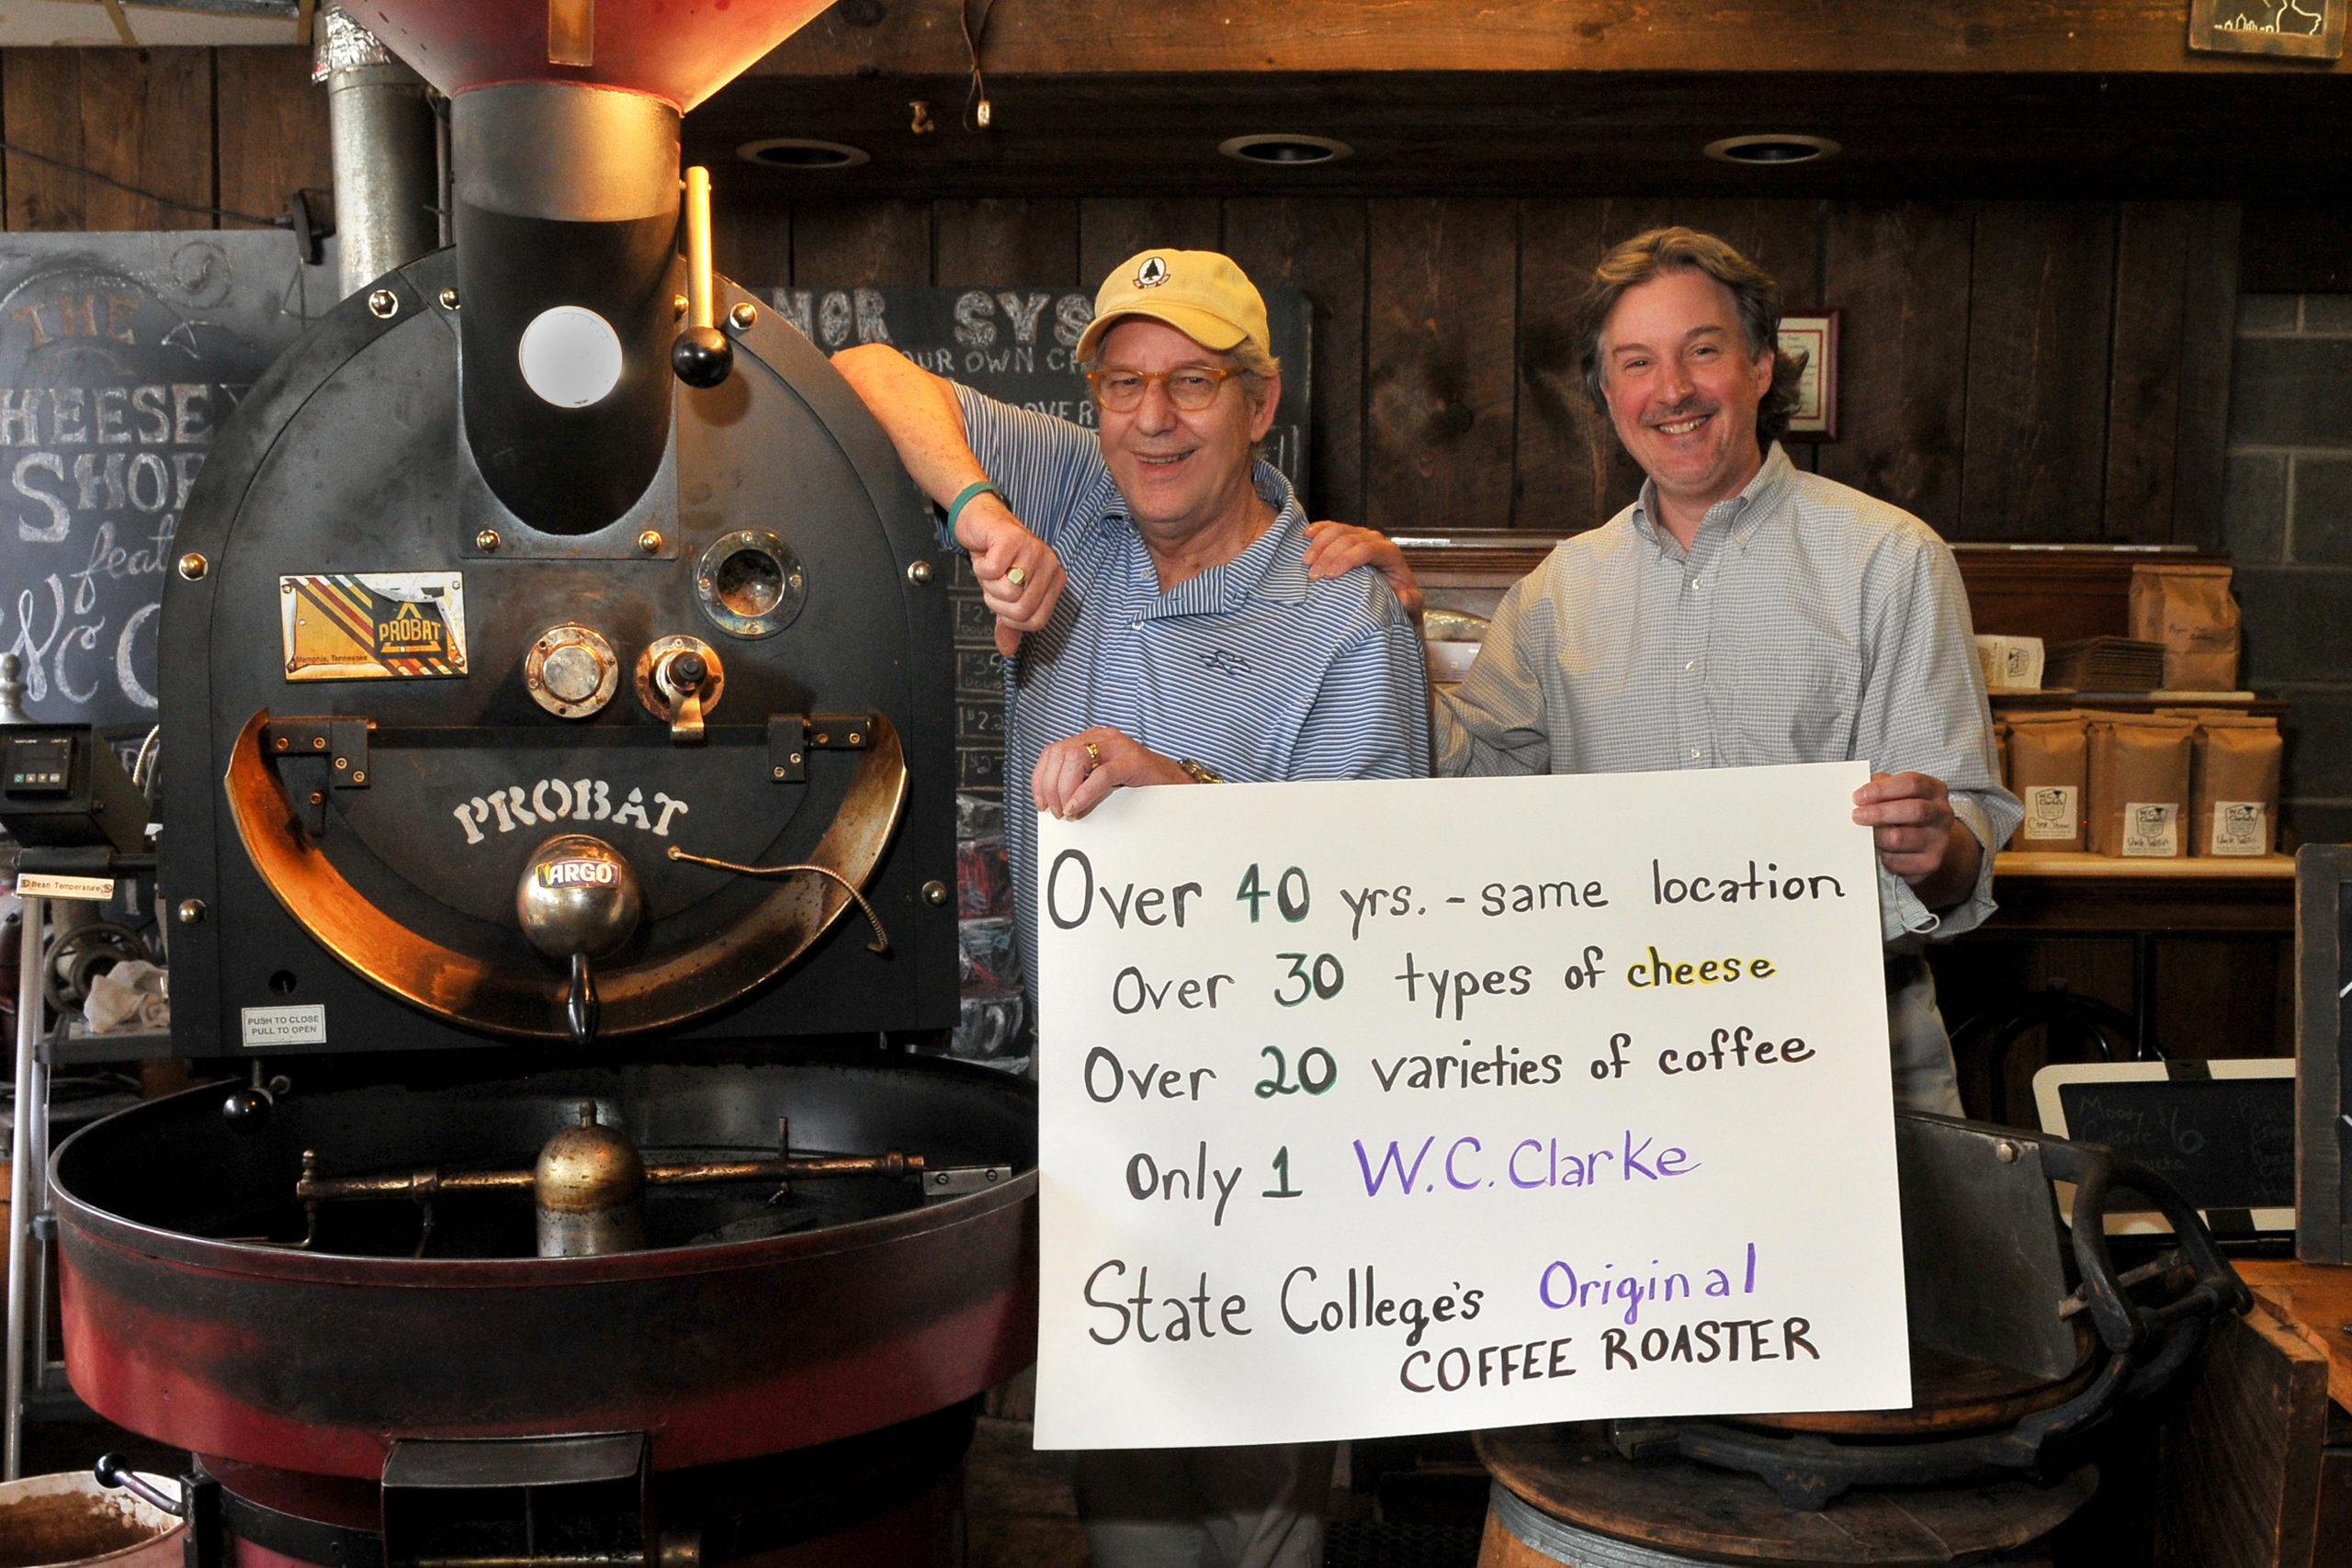 THE
HEESE
SHOP
feat
W.C. C
NOR SYS
OUR OWN
OVER
PROBAT
Memphis, Tennessee
PROBAT
ARGO
Bean Temperature
PUSH TO CLOSE
PULL TO OPEN
Over 40 yrs. - same location
Over 30 types of cheese
Over 20 varieties of coffee
Only 1 W.C. Clarke
State College's Original
COFFEE ROASTER
W.C.
Clarke's